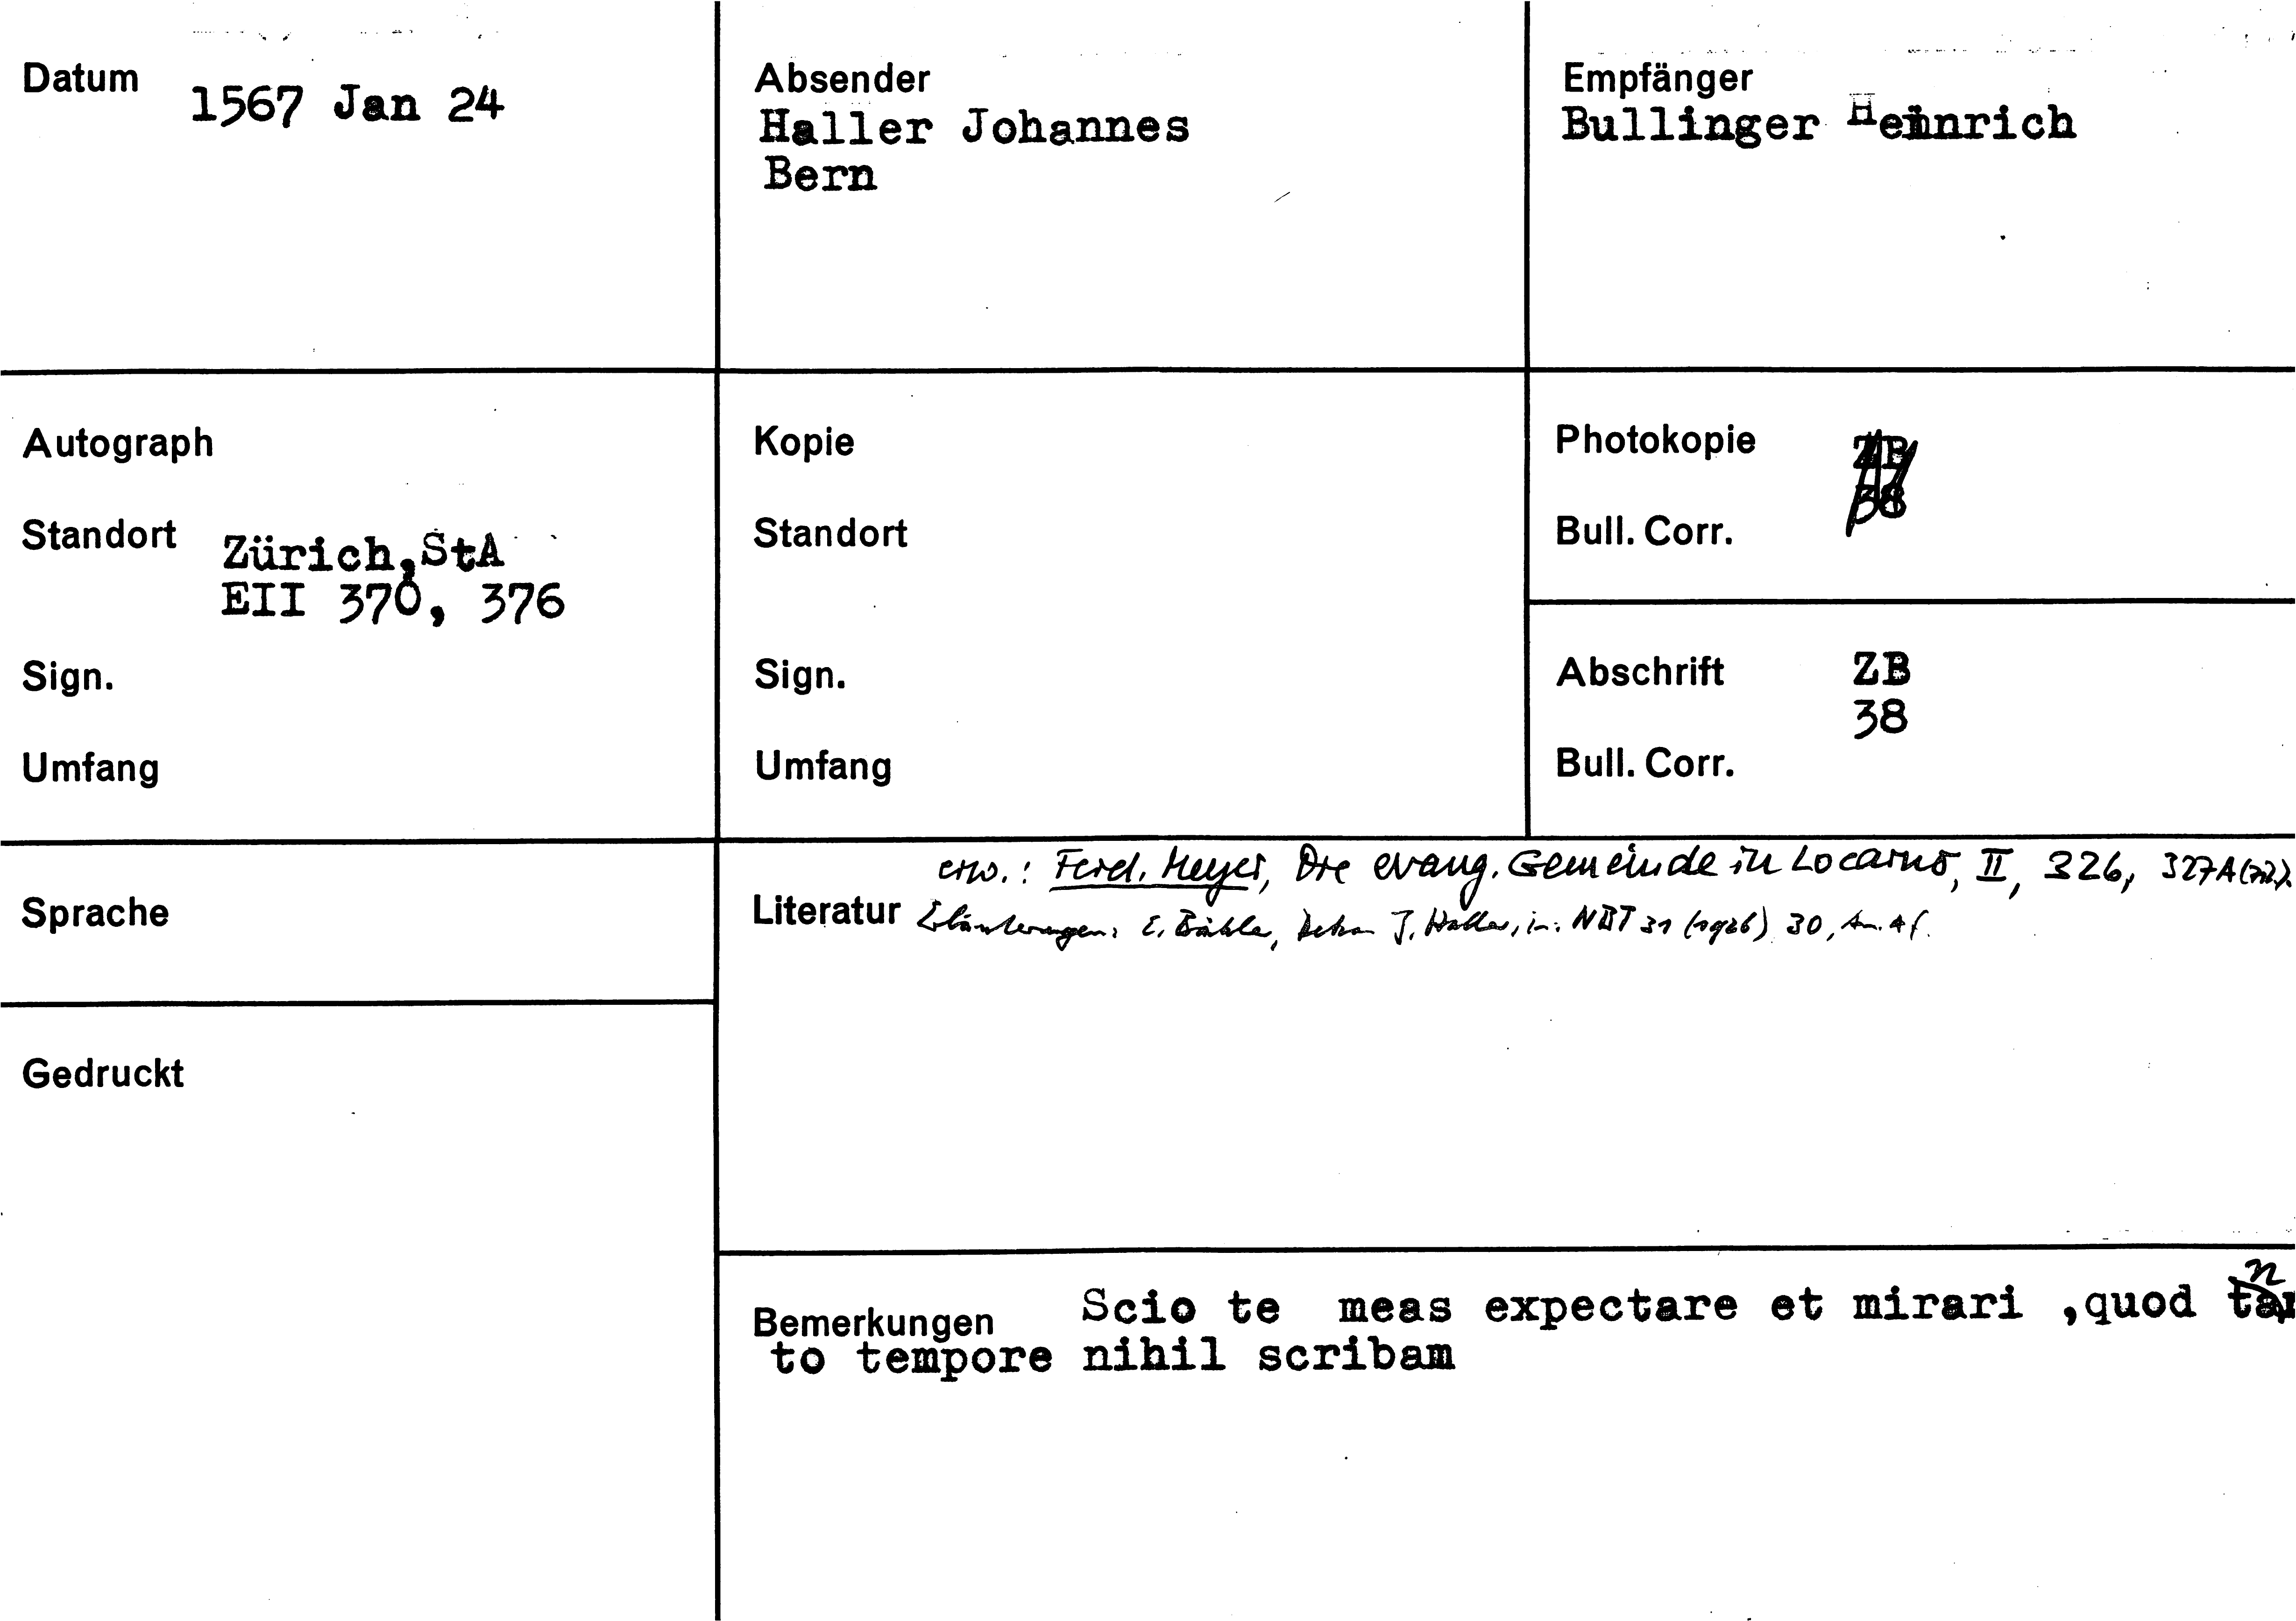 Datum 1567 Jan 24
Absender
Haller Johannes
Bern
Empfänger
Bullinger Heinrich
Autograph
Standort Zürich,StA
EII 370, 376
Sign.
Umfang
Kopie
Standort
Sign.
Umfang
Photokopie ZB
38
Bull. Corr.
Abschrift ZB
38
Bull. Corr.
Sprache
Gedruckt
erw.: Ferd. Meyer, Die evang. Gemeinde in Locarno, II, 326, 327A(zit.).
Literatur Erläuterungen: E. Bähler, Dekan J. Haller, in: NBT 31 (1926) 30, An. 4f.
Bemerkungen Scio te meas expectare et mirari ,quod tan
to tempore nihil scribam